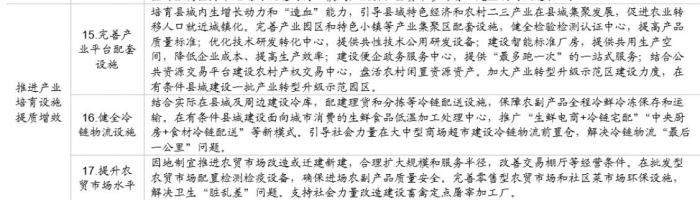 推进产业
培育设施
提质增效
15.完善产
业平台配套
设施
培育县城内生增长动力和“造血”能力，引导县域特色经济和农村二三产业在县城集聚发展，促进农业转
移人口就近城镇化。完善产业园区和特色小镇等产业集聚区配套设施，健全检验检测认证中心，提高产品
质量标准；优化技术研发转化中心，提供共性技术公用研发设备；建设智能标准厂房，提供共用生产空
间，降低企业成本、提高生产效率；建设便企政务服务中心，提供“最多跑一次”的一站式服务；结合公
共资源交易平台建设农村产权交易中心，盘活农村闲置资源资产。加大产业转型升级示范区建设力度，在
有条件县城建设一批产业转型升级示范园区。
16.健全冷
链物流设施
结合实际在县城及周边建设冷库，配建理货和分拣等冷链配送设施，保障农副产品全程冷鲜冷冻保存和运
输。在有条件县城建设面向城市消费的生鲜食品低温加工处理中心，推广“生鲜电商+冷链宅配”“中央
厨房+食材冷链配送”等新模式。引导社会力量在大中型商场超市建设冷链物流前置仓，解决冷链物流“最后
一公里”问题。
17.提升农
贸市场水平
因地制宜推进农贸市场改造或迁建新建，合理扩大规模和服务半径，改善交易棚厅等经营条件。在批发型
农贸市场配置检测检疫设备，确保进场农副产品质量安全。完善零售型农贸市场和社区菜市场环保设施，
解决卫生“脏乱差”问题。支持社会力量改造建设畜禽定点屠宰加工厂。